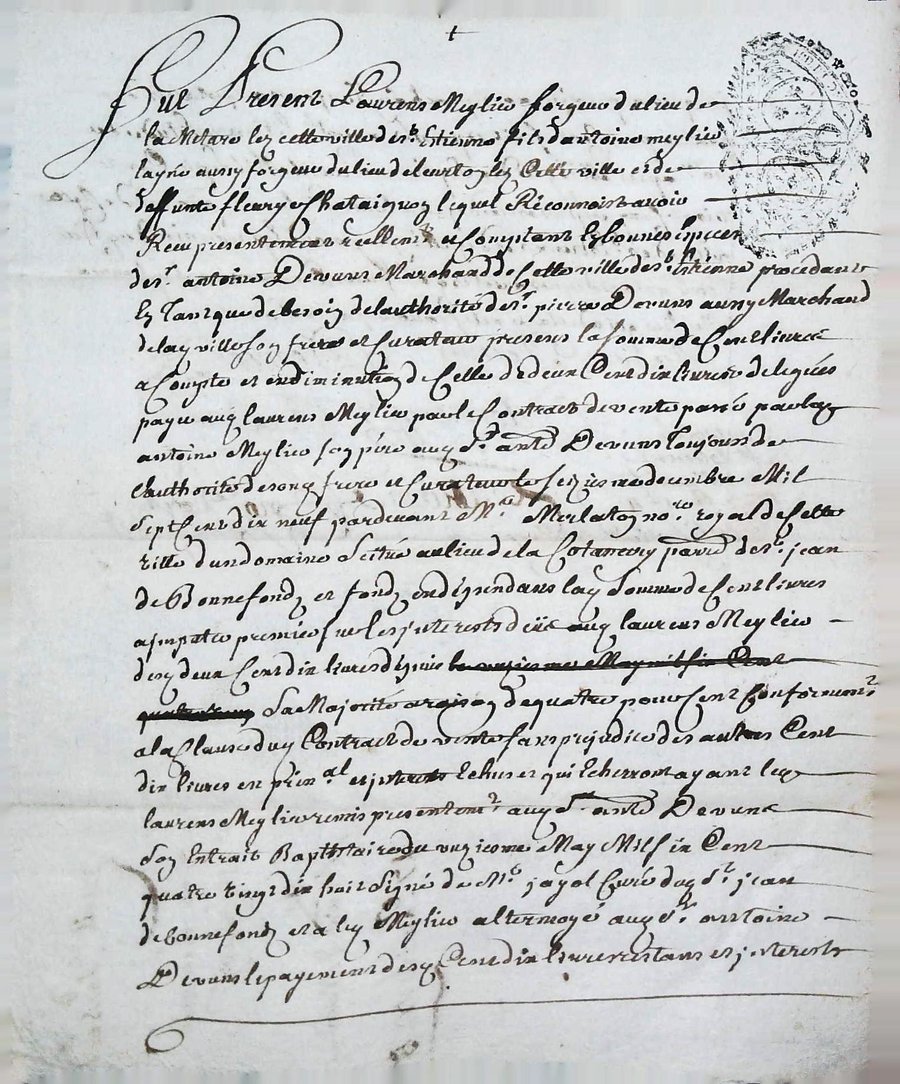 Fut Present Laurens Meglier forgeur du lieu de
la Metare lez cette ville de st Etienne fils d antoine meglier
layné aussy forgeur du lieu de lez Cette ville et de
deffunte fleurye Chataignon lequel Reconnoist avoir
Receu presentement reellemt et Comptant En bonnes Especes
de sr antoine Devuns Marchand de Cette ville de st Etienne procedant
En tant que de besoin de lauthorité de sr pierre Devuns aussy Marchand
de lad ville son frere et Curateur present la somme de Cent livres
a Compte et en diminution de Celle de deux Cent dix livres deleguée
payer aud laurens Meglier par le Contract de vente passé par led
antoine Meglier son pere aud sr antoe Devuns toujours de
lauthorité de son frere et Curateur le seizieme decembre Mil
sept Cent dix neuf pardevant Me Merlaton nore royal de Cette
ville d un domaine scitué au lieu de la de sr jean
de Bonnefond et fond en dependans lad somme de Cent livres
a imputer premier sur les interests deüe aud laurens Meglier
desd deux Cent dix livres depuis le onzieme May mil six Cent
quatre vingt sa Majorité a raison de quatre pour Cent Conformemt
a la Clause dud Contract de vente sans prejudice des autres Cent
dix livres en prinal et interests Echus et qui Echerront ayant led
laurens Meglier remis presentemt aud sr antoe Devuns
son Extrait Baptistaire du onzieme May Mil six Cent
quatre vingt dix huit signé de Me jayol Curé dud st jean
de bonnefond et a led Meglier attermoyé aud sr antoine
Devuns le payement desd Cent dix livres restans et interests